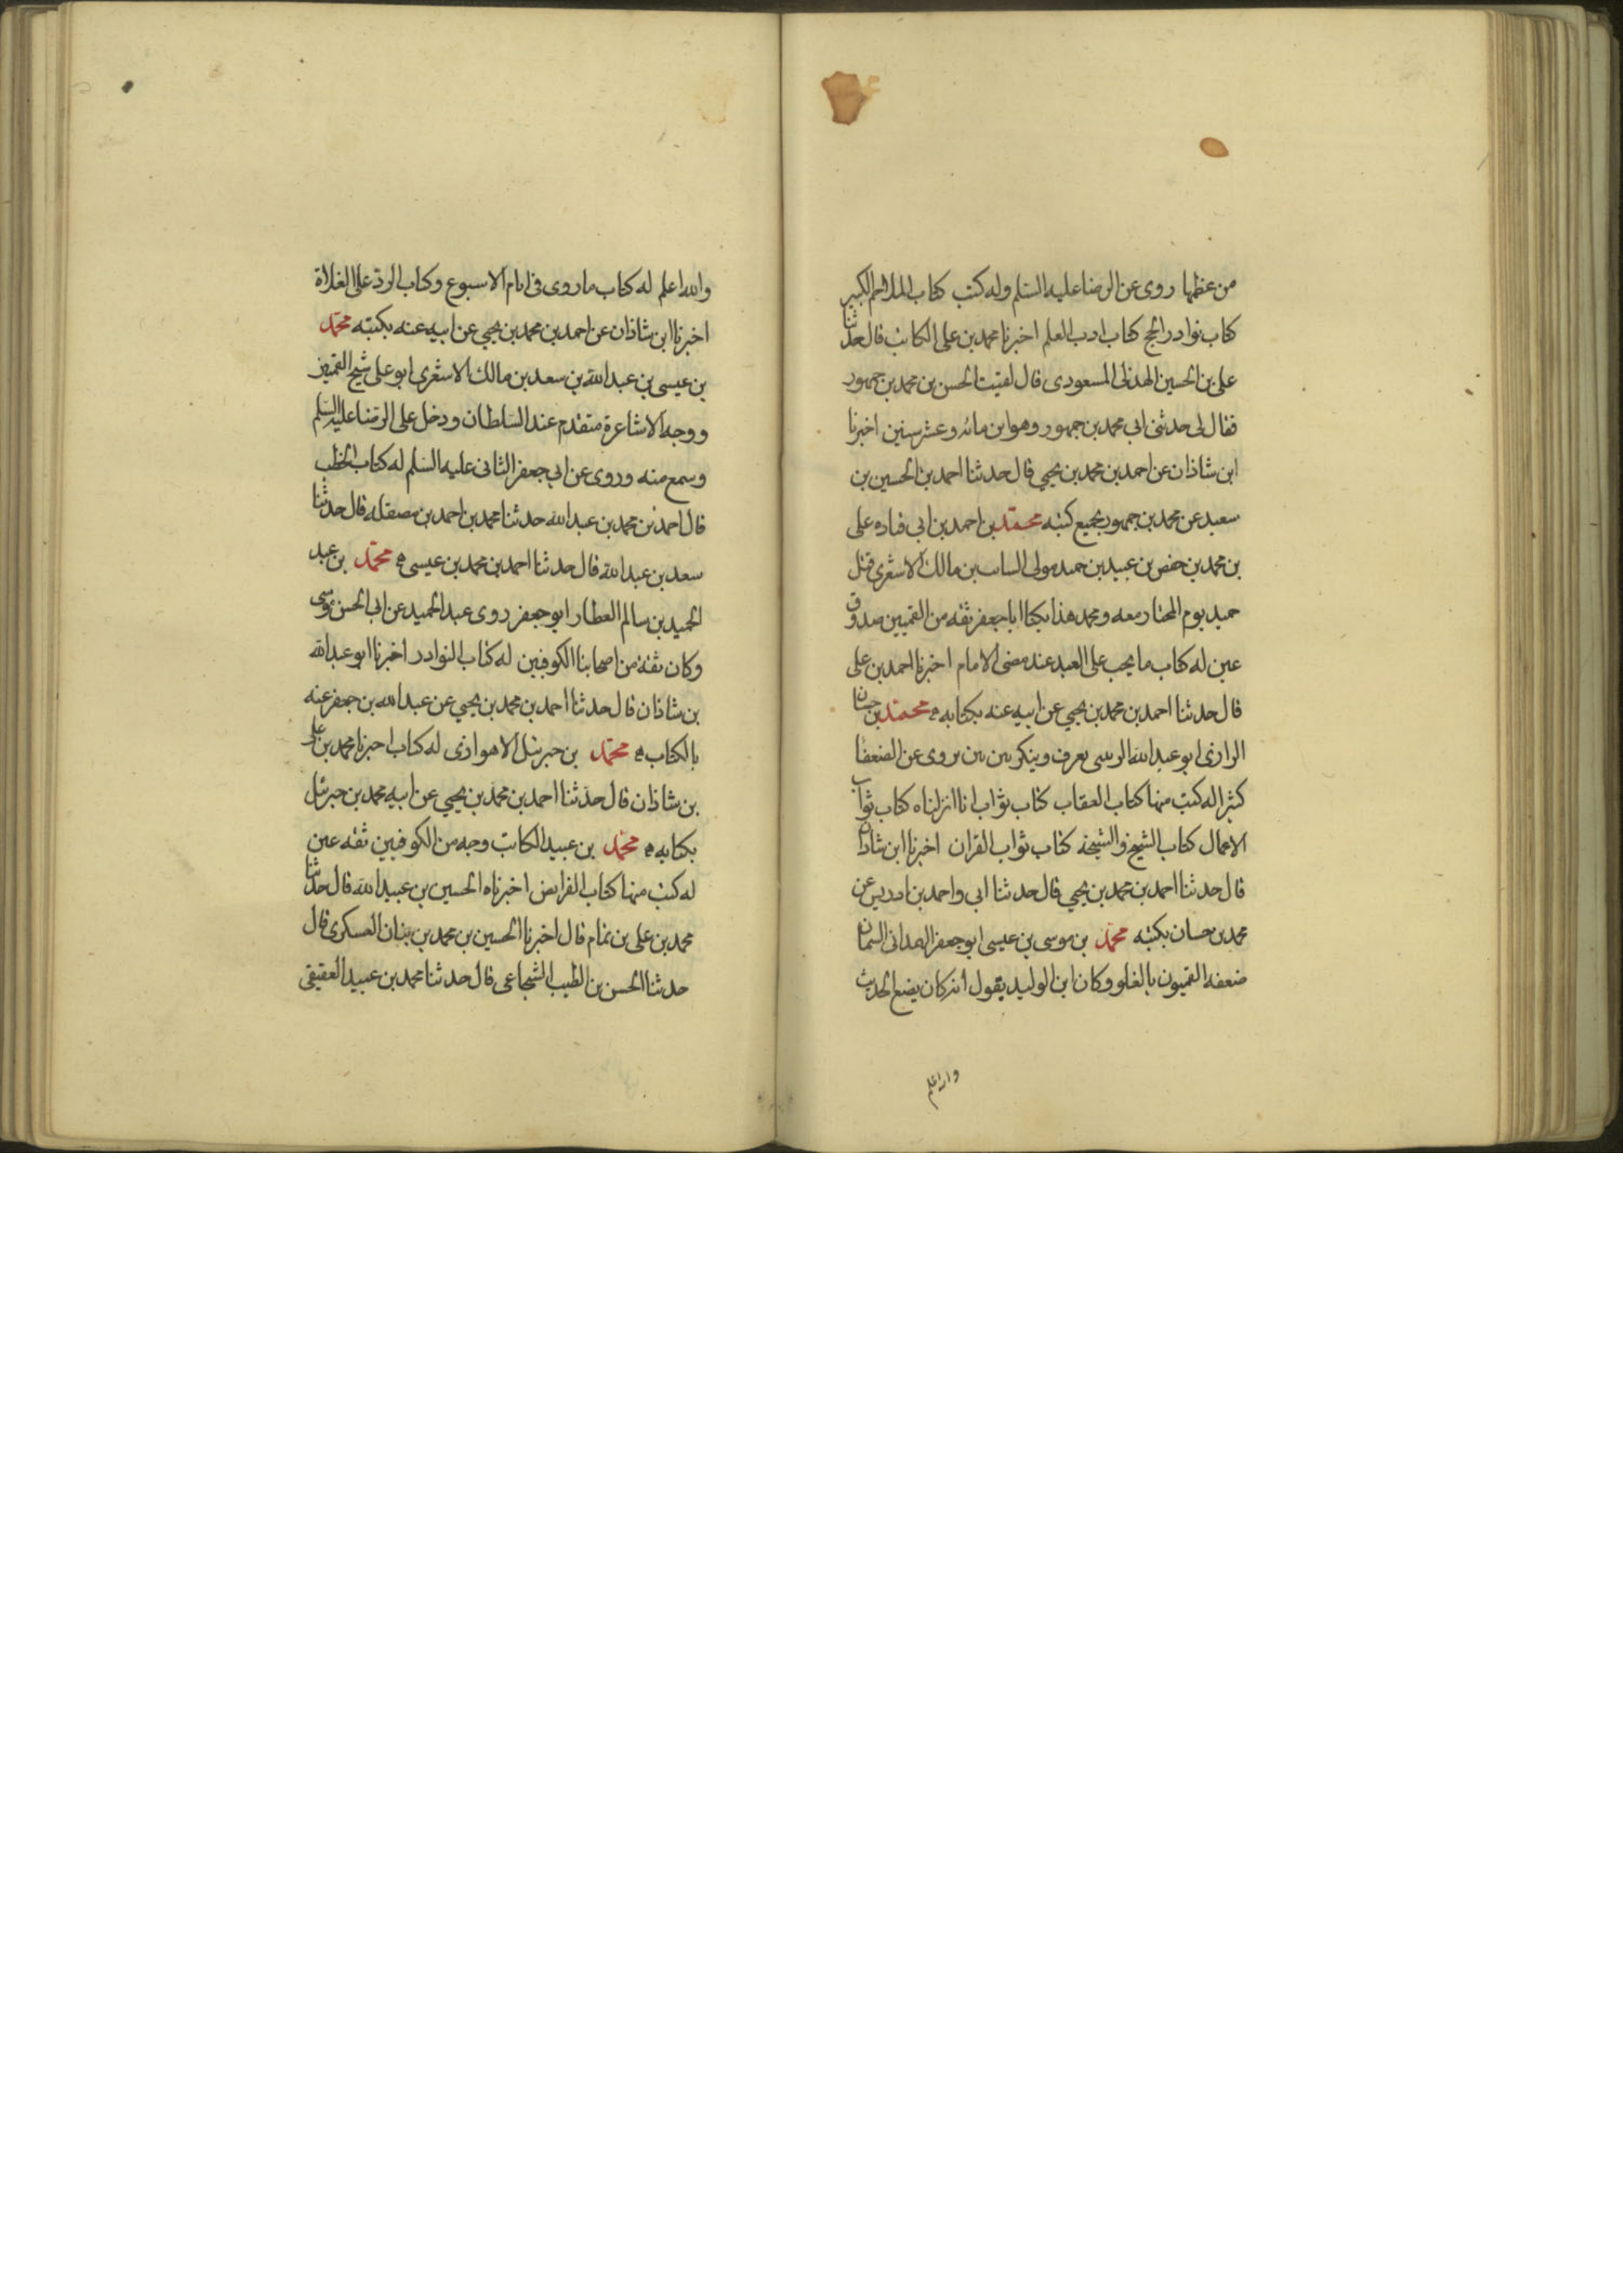 من عظمها روى عن الرضا عليه السلم وله كتب كتاب الملاحم الكبير
كتاب نوادر الحج كتاب ادب العلم اخبرنا محمد بن على الكاتب قال حدثنا
على بن الحسين الهذلى المسعودى قال لقيت الحسن بن محمد بن جمهور
فقال لى حدثنى ابى محمد بن جمهور وهو ابن مائه وعشر سنين اخبرنا
ابن شاذان عن احمد بن محمد بن يحيى قال حدثنا احمد بن الحسين بن
سعيد عن محمد بن جمهور بجميع كتبه محمد بن احمد بن ابى قتاده على
بن محمد بن حفص بن عبيد بن حميد مولى السائب بن مالك الاشعرى قتل
حميد يوم المختار معه ومحمد هذا يكنا ابا جعفر ثقه من القميين صدوق
عين له كتاب ما يجب على العبد عند مضى الامام اخبرنا احمد بن على
قال حدثنا احمد بن محمد بن يحيى عن ابيه عنه بكتابه محمد بن حسان
الرازى ابو عبدالله الزينبى يعرف وينكر بين بين يروى عن الضعفا
كثيرا له كتب منها كتاب العقاب كتاب ثواب انا انزلناه كتاب ثواب
الاعمال كتاب الشيخ والشيخة كتاب ثواب القران اخبرنا ابن شاذان
قال حدثنا احمد بن محمد بن يحيى قال حدثنا ابى واحمد بن ادريس عن
محمد بن حسان بكتبه محمد بن موسى بن عيسى ابو جعفر الهمدانى السمان
ضعفه القميون بالغلو وكان ابن الوليد يقول انه كان يضع الحديث
والله اعلم
والله اعلم له كتاب ما روى فى ايام الاسبوع وكتاب الرد على الغلاة
اخبرنا ابن شاذان عن احمد بن محمد بن يحيى عن ابيه عنه بكتبه محمد
بن عيسى بن عبدالله بن سعد بن مالك الاشعرى ابو على شيخ القميين
ووجه الاشاعرة متقدم عند السلطان ودخل على الرضا عليه السلم
وسمع منه وروى عن ابى جعفر الثانى عليه السلم له كتاب الخطب
قال احمد بن محمد بن عبدالله حدثنا محمد بن احمد بن مصقله قال حدثنا
سعد بن عبدالله قال حدثنا احمد بن محمد بن عيسى محمد بن عبد
الحميد بن سالم العطار ابو جعفر روى عبد الحميد عن ابى الحسن موسى
وكان ثقة من اصحابنا الكوفيين له كتاب النوادر اخبرنا ابو عبدالله
بن شاذان قال حدثنا احمد بن محمد بن يحيى عن عبدالله بن جعفر عنه
بالكتاب محمد بن جبرئيل الاهوازى له كتاب اخبرنا محمد بن على
بن شاذان قال حدثنا احمد بن محمد بن يحيى عن ابيه محمد بن جبرئيل
بكتابه محمد بن عبيد الكاتب وجه من الكوفيين ثقه عين
له كتب منها كتاب الفرايض اخبرناه الحسين بن عبيدالله قال حدثنا
محمد بن على بن تمام قال اخبرنا الحسين بن محمد بن بنان العسكرى قال
حدثنا الحسن بن الطيب الشجاعى قال حدثنا محمد بن عبيد العقيقى